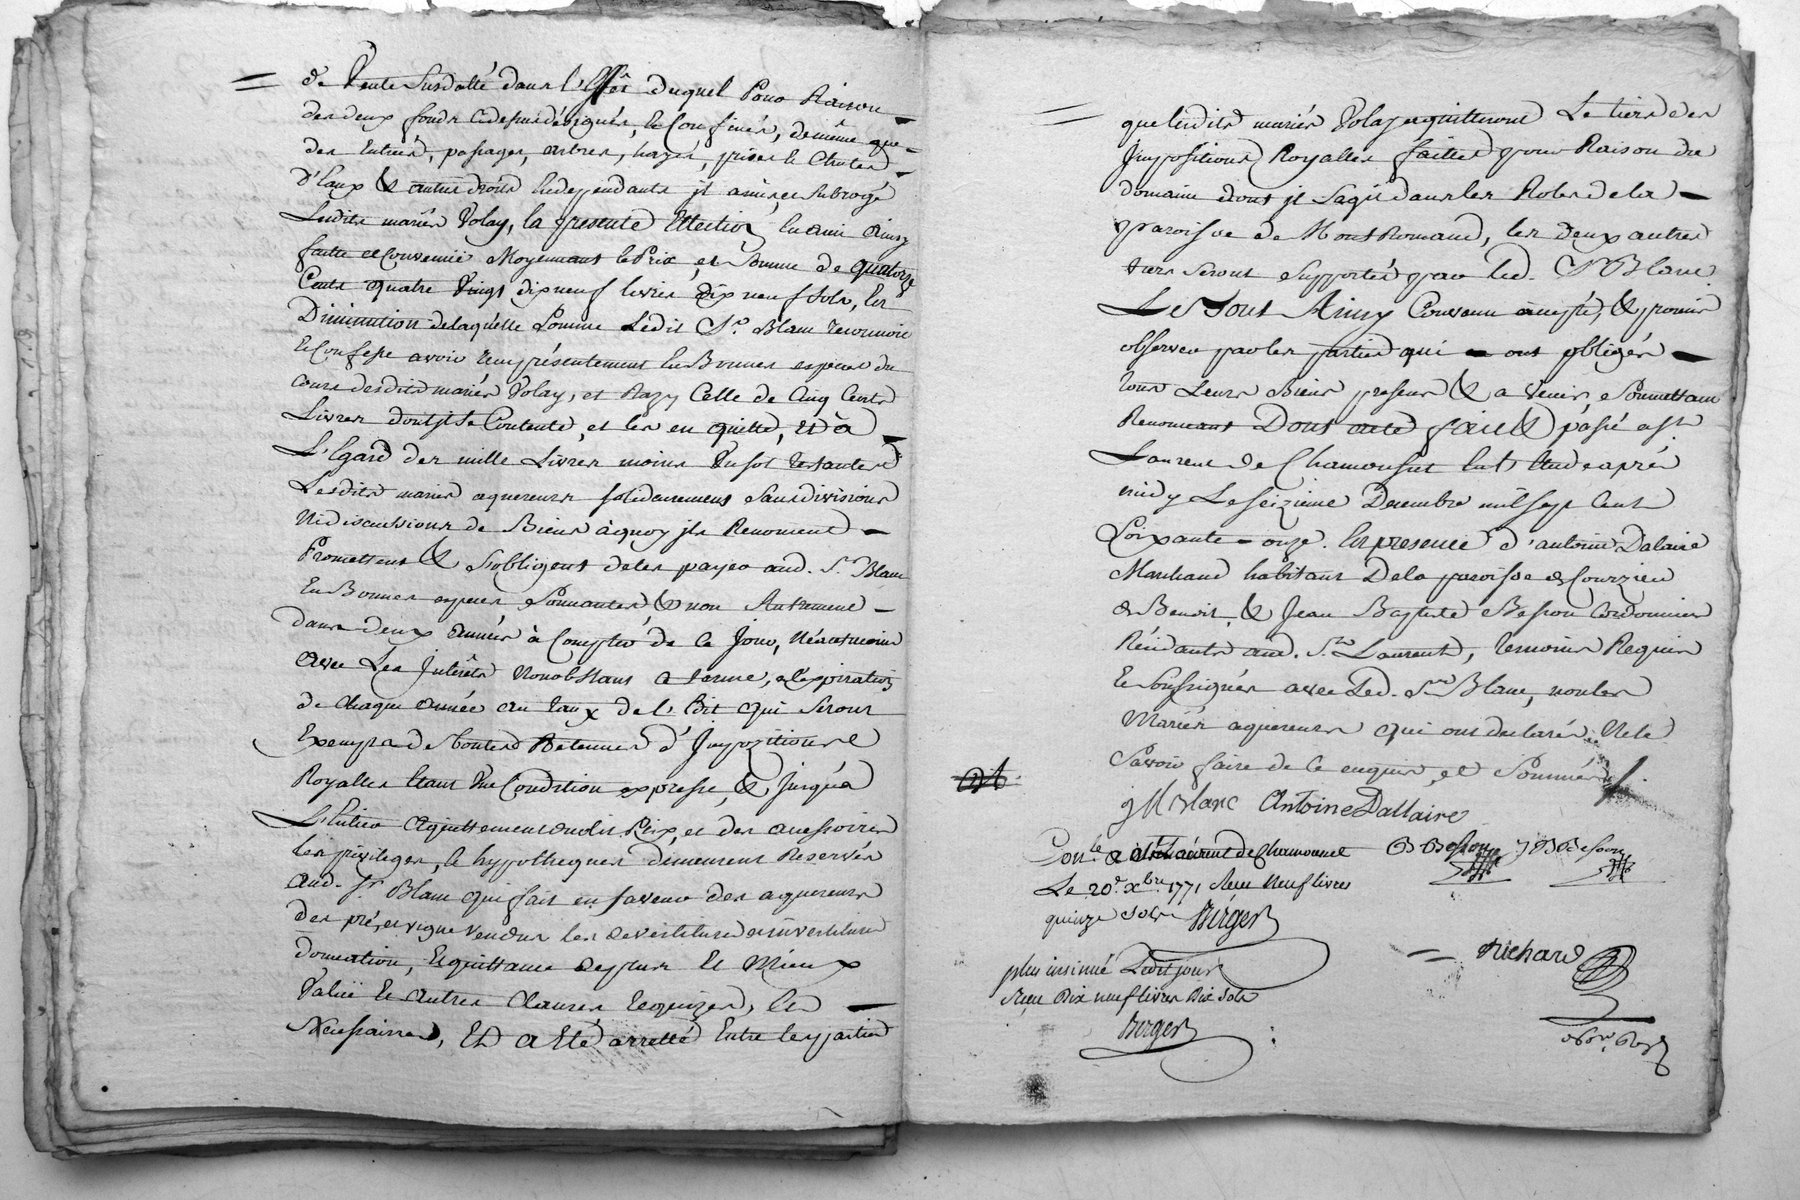 de Vente Susdatté dans l'Effet duquel Pour Raison
des deux fonds cydessus désignés, & Confinés, de même que
des Entrées, passages, arbres, hayes, prises & Chutes
D'Eaux & autres droits En dependants jl a mis et subrogé
Lesdits mariés Volay, la presente
faitte et Convenüe Moyennant le Prix et Somme de quatorze
Cents quatre Vingt dix neuf livres dix neuf sols, En
Diminution de laquelle Somme Ledit Sr. Blanc reconnoit
& Confesse avoir reçu présentement En Bonnes especes du
cours desdits mariés Volay, et Razy Celle de Cinq Cents
Livres dont jl se Contente, et les en quitte, Et à
L'Egard des mille Livres moins Un sol restantes
Lesdits mariés aquereurs solidairement Sans division
Ni discussion de Biens à quoy jls Renoncent
Promettent & S'obligent de les payer aud. Sr. Blanc
En Bonnes especes Sonnantes & non Autrement
dans deux Années à Compter de Ce Jour, Néantmoins
avec Les Intérêts Nonobstant le terme, a l'expiration
de Chaque année au taux de l'Edit qui Seront
Exempts de toutes Retenües d'Impozitions
Royalles Etant Une Condition expresse, & Jusqu'a
L'Entier Aquittement dudit Prix, et des accessoires
les privileges, & hypotheques demeurent Reservés
Aud. Sr. Blanc qui fait en faveur des aquereurs
des pré, et vigne vendus les devestiture investiture
donnation, & quittance de plus & Mieux
Value & autres Clauses requizes, &
Necessaires, Et a Eté arretté Entre les parties
que lesdits mariés Volay aquitteront Le tiers des
Impositions Royalles faittes pour Raison du
domaine dont jl Sagit dans les Roles de la
paroisse de Mont Romand, les deux autres
tiers seront supportés par led. Sr. Blanc
Le Tout Ainsy Convenu accepté, & promis
observer par les parties qui ont obligés
tous Leurs Biens presens & a Venir, Soumettant
Renonceant Dont acte fait & passé a St
Laurent de Chamousset En l'Etude après
midy Le Seizieme Decembre mil Sept Cent
Soixante-onze. En presence d'antoine Dalaire
Marchand habitant De la paroisse de Courzieu
& Jean Baptiste Besson Cordonnier
Résidants aud. St. Laurent, temoins Requis
& Soussignés avec Led. Sr Blanc, non les
Mariés aquereurs qui ont declarés Ne le
Savoir faire de Ce enquis, et Sommés
Blanc Antoine Dallaire
Conlé a St Laurent de Chamousset B Besson J B Besson
Le 20e. Xbre 1771 Reçu Neuf livres
quinze Sols Berger
Richard
plus insinué Ledit jour
Reçu Dix neuf livres Dix sols
Berger